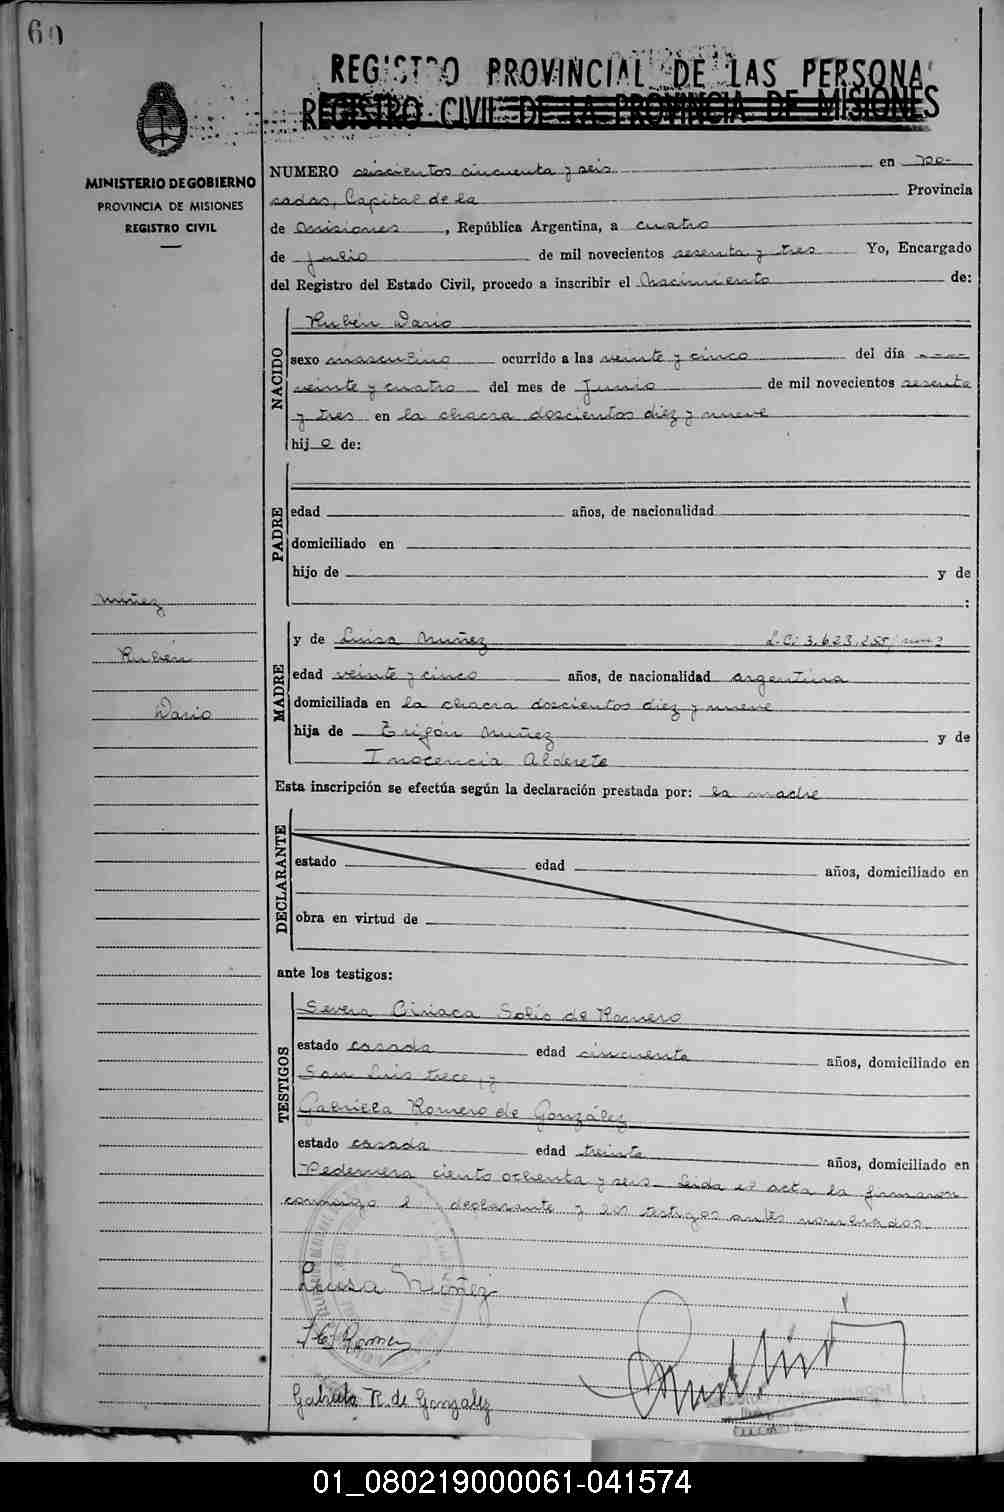 60
REGISTRO PROVINCIAL DE LAS PERSONA
REGISTRO CIVIL DE LA PROVINCIA DE MISIONES
MINISTERIO DE GOBIERNO
PROVINCIA DE MISIONES
REGISTRO CIVIL
NUMERO seiscientos cincuenta y seis en Po-
sadas, Capital de la Provincia
de Misiones, República Argentina, a cuatro
de julio de mil novecientos sesenta y tres Yo, Encargado
del Registro del Estado Civil, procedo a inscribir el Nacimiento de:
NACIDO
Rubén Dario
sexo masculino ocurrido a las veinte y cinco del día ----
veinte y cuatro del mes de Junio de mil novecientos sesenta
y tres en la chacra doscientos diez y nueve
hijo de:
PADRE
edad años, de nacionalidad
domiciliado en
hijo de y de
:
Núñez
Rubén
Dario
MADRE
y de Luisa Núñez L.C. 3.623.255
edad veinte y cinco años, de nacionalidad argentina
domiciliada en la chacra doscientos diez y nueve
hija de Trifón Núñez y de
Inocencia Alderete
Esta inscripción se efectúa según la declaración prestada por: la madre
DECLARANTE
estado edad años, domiciliado en
obra en virtud de
ante los testigos:
TESTIGOS
Severa Ciriaca Solís de Romero
estado casada edad cincuenta años, domiciliado en
San Luis trece, y
Gabriela Romero de González
estado casada edad treinta años, domiciliado en
Pedernera ciento ochenta y seis. Leida el acta la firmaron
conmigo l declarante y los testigos antes nombrados.
Luisa Núñez
Gabriela R. de Gonzalez
01_080219000061-041574